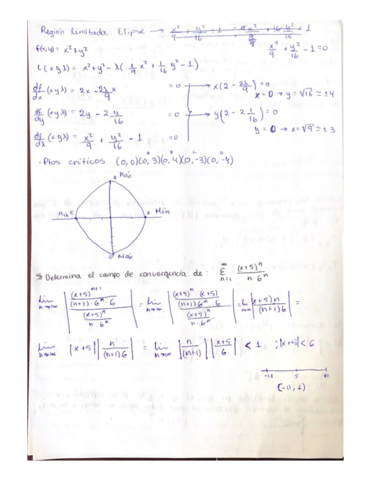 Región limitada: Elipse → x²/9 + y²/16 = 1
f(x,y) = x² + y²
x²/9 + y²/16 - 1 = 0
L(x y λ) = x² + y² - λ(1/9 x² + 1/16 y² - 1)
df/dx (x y λ) = 2x - 2λ/9 x = 0 → x(2 - 2λ/9) = 0
x = 0 → y = √16 = ±4
df/dy (x y λ) = 2y - 2λ y/16 = 0 → y(2 - 2λ/16) = 0
y = 0 → x = √9 = ±3
df/dλ (x y λ) = x²/9 + y²/16 - 1 = 0
· Ptos críticos (0,0)(0,3)(0,4)(0,-3)(0,-4)
Máx
Mín Mín
Máx
5) Determina el campo de convergencia de: ∞Σn=1 (x+5)ⁿ / n·6ⁿ
Lim n→∞ | (x+5)ⁿ⁺¹ / (n+1)·6ⁿ·6 / (x+5)ⁿ / n·6ⁿ | = Lim n→∞ | (x+5)ⁿ·(x+5) / (n+1)6ⁿ·6 / (x+5)ⁿ / n·6ⁿ | = Lim n→∞ | (x+5)n / (n+1)6 | =
Lim n→∞ |x+5| | n / (n+1)6 | = Lim n→∞ | n / (n+1) | | x+5 / 6 | < 1 ; |x+5| < 6
-11 5
(-11, 1)